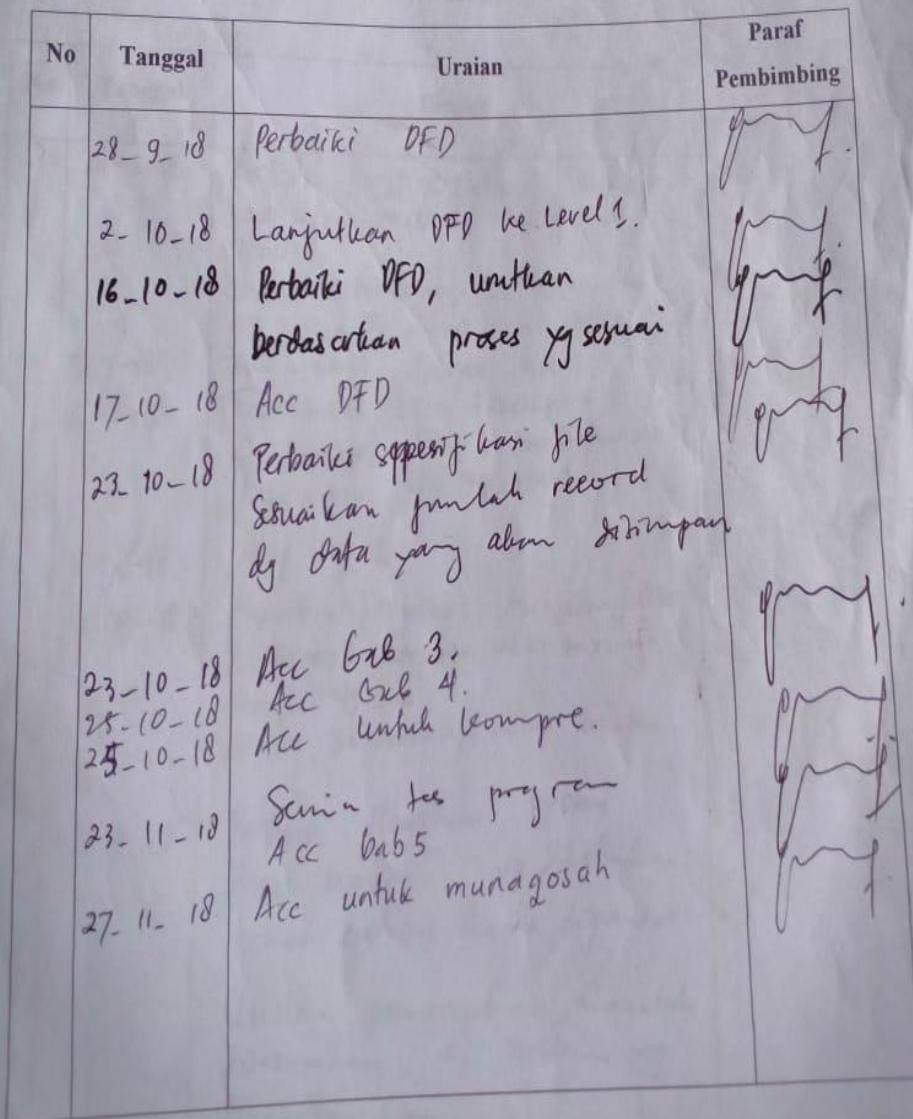 No Tanggal Uraian Paraf Pembimbing
28-9-18 Perbaiki DFD
2-10-18 Lanjutkan DFD ke Level 1.
16-10-18 Perbaiki DFD, urutkan
berdasarkan proses yg sesuai
17-10-18 Acc DFD
23-10-18 Perbaiki sppesifikasi file
Sesuaikan jumlah record
dg data yang akan disimpan
23-10-18 Acc bab 3.
25-10-18 Acc bab 4.
25-10-18 Acc untuk kompre.
Senin tes program
23-11-18 Acc bab 5
27-11-18 Acc untuk munaqosah